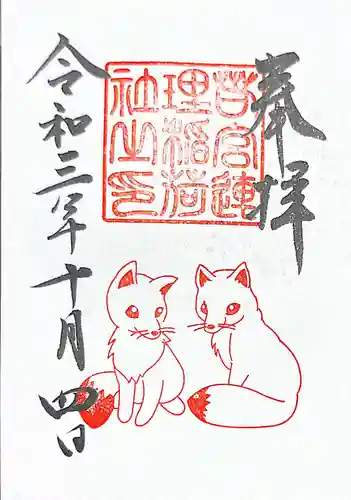 奉拝
若宮蓮
理稲荷
社之印
令和三年十月四日